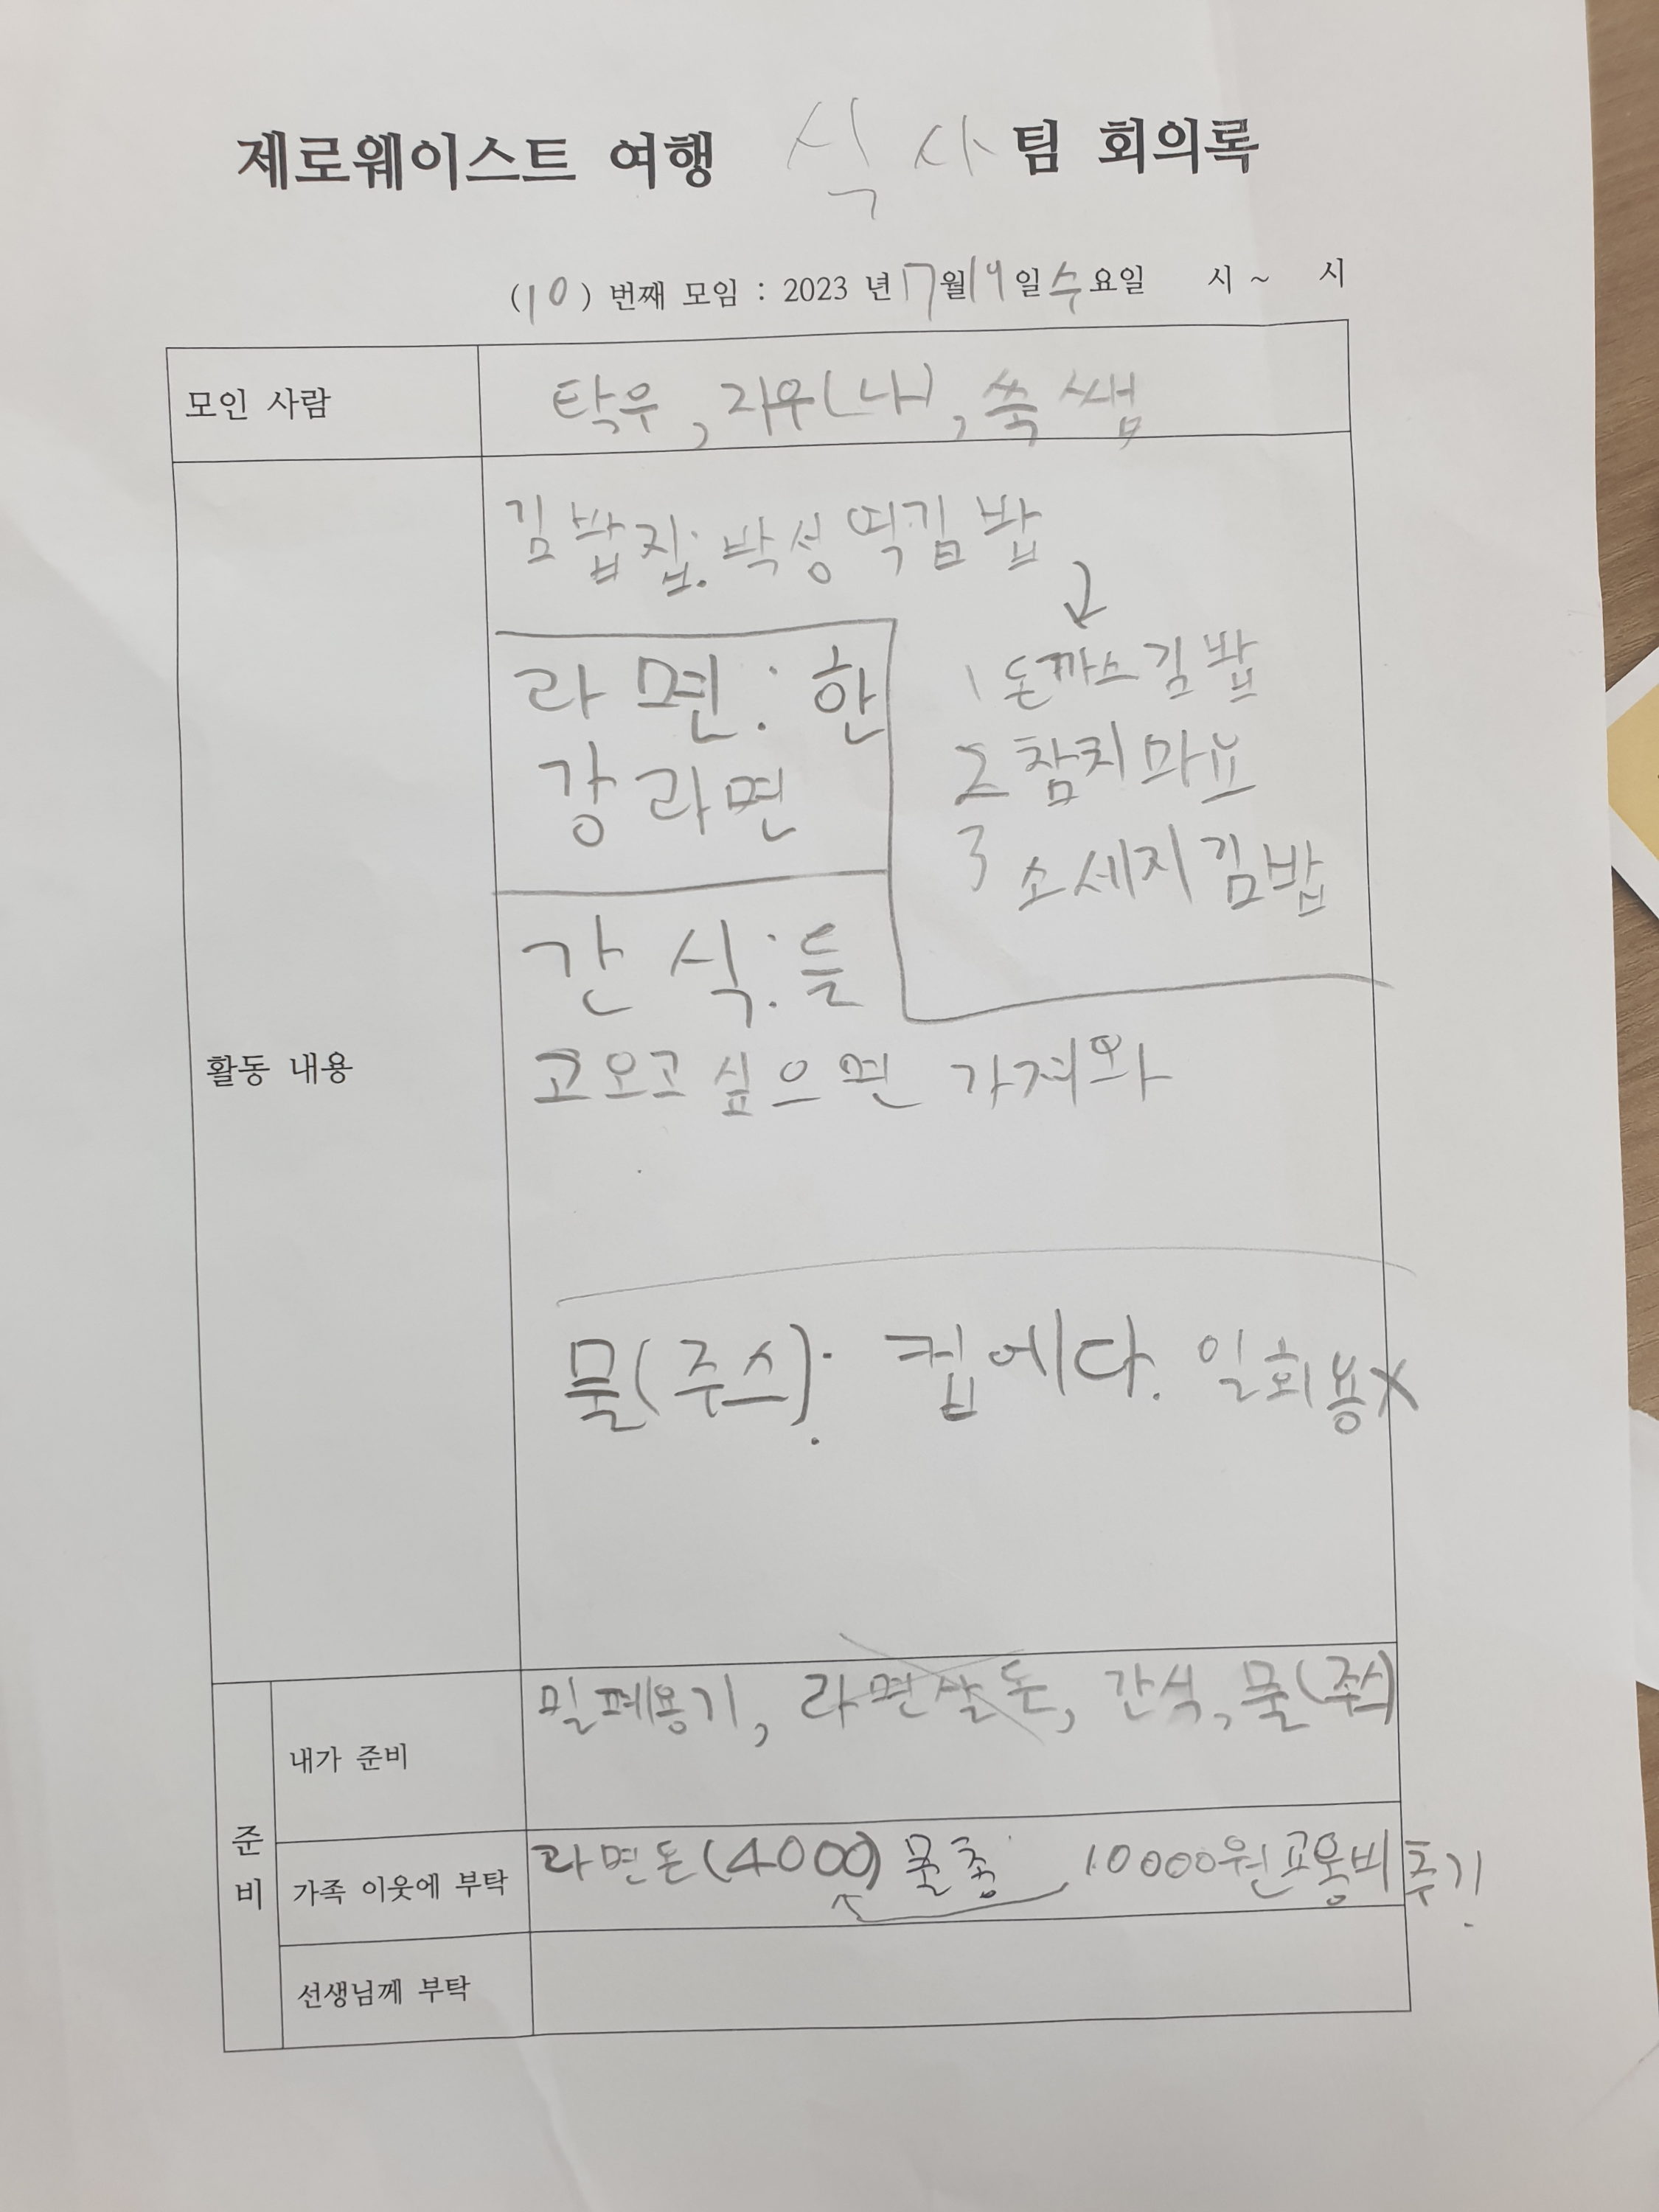 제로웨이스트 여행 식사 팀 회의록
(10) 번째 모임 : 2023 년 7월 19일 수요일 시 ~ 시
모인 사람
탁우, 지우(나), 쑥쌤
활동 내용
김밥집: 박성역김밥
라면: 한
강라면
1 돈까스김밥
2 참치마요
3 소세지김밥
간식: 들
고오고 싶으면 가져와
물(주스): 컵에다. 일회용X
준비
내가 준비
밀폐용기, 라면살돈, 간식, 물(주스)
가족 이웃에 부탁
라면돈(4000) 물 10000원 교통비 추가.
선생님께 부탁